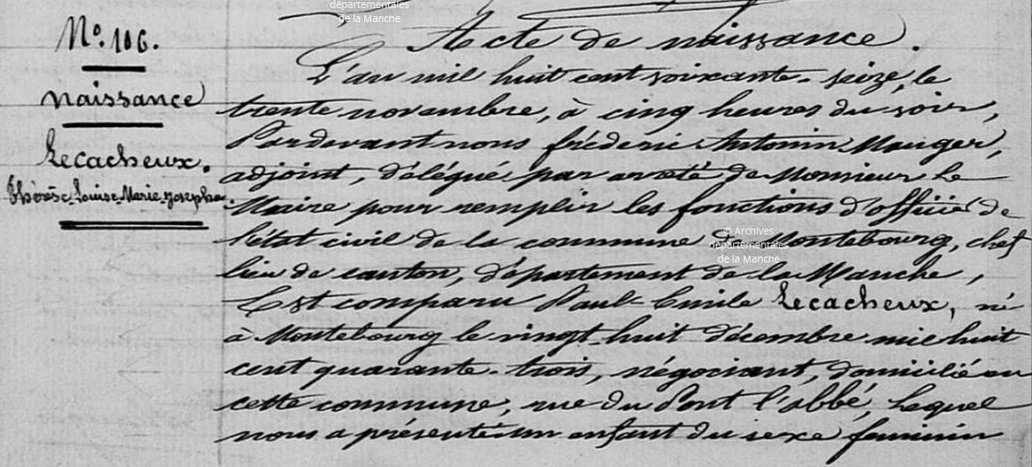 départementales
de la Manche
Nº. 106.
naissance
Lecacheux.
Thérèse Louise Marie Josephe
Acte de naissance.
L'an mil huit cent soixante-seize, le
trente novembre, à cinq heures du soir,
Pardevant nous fréderic Antonin Mauger,
adjoint, délégué par arrêté de Monsieur le
Maire pour remplir les fonctions d'officier de
l'état civil de la commune de Montebourg, chef
lieu de canton, département de la Manche,
Est comparu Paul-Emile Lecacheux, né
à Montebourg le vingt-huit décembre mil huit
cent quarante-trois, négociant, domicilié en
cette commune, rue du Pont l'abbé, lequel
nous a présenté un enfant du sexe féminin
© Archives
départementales
de la Manche